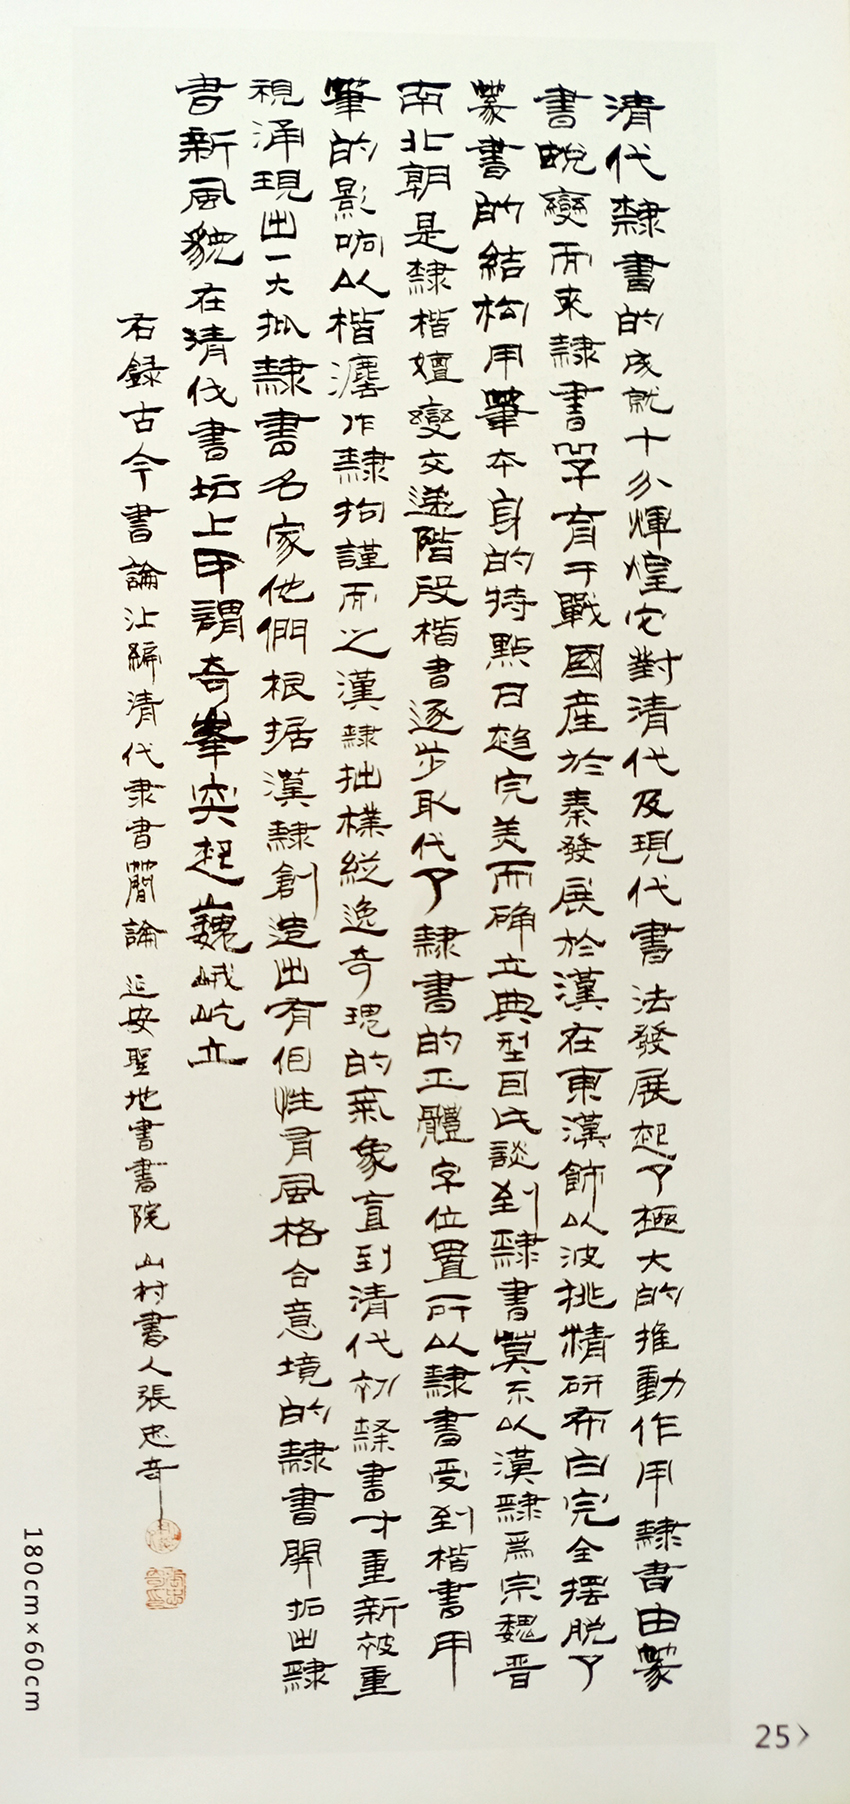 清代隸書的成就十分輝煌它對清代及現代書法發展起了極大的推動作用隸書由篆
書蛻變而來隸書孕育于戰國産於秦發展於漢在東漢飾以波挑精研布白完全擺脱了
篆書的結构用筆本身的特點日趨完美而确立典型自此談到隸書莫不以漢隸爲宗魏晋
南北朝是隸楷嬗變交遞階段楷書逐步取代了隸書的正體字位置所以隸書受到楷書用
筆的影响以楷灋作隸拘謹而之漢隸拙樸縱逸奇瑰的氣象直到清代初隸書才重新被重
視涌現出一大批隸書名家他們根据漢隸創造出有個性有風格合意境的隸書開拓出隸
書新風貌在清代書坛上甲謂奇峯突起巍峨屹立
右録古今書論汇編清代隶書簡論 延安聖地書書院 山村書人張忠奇
180cm×60cm
25